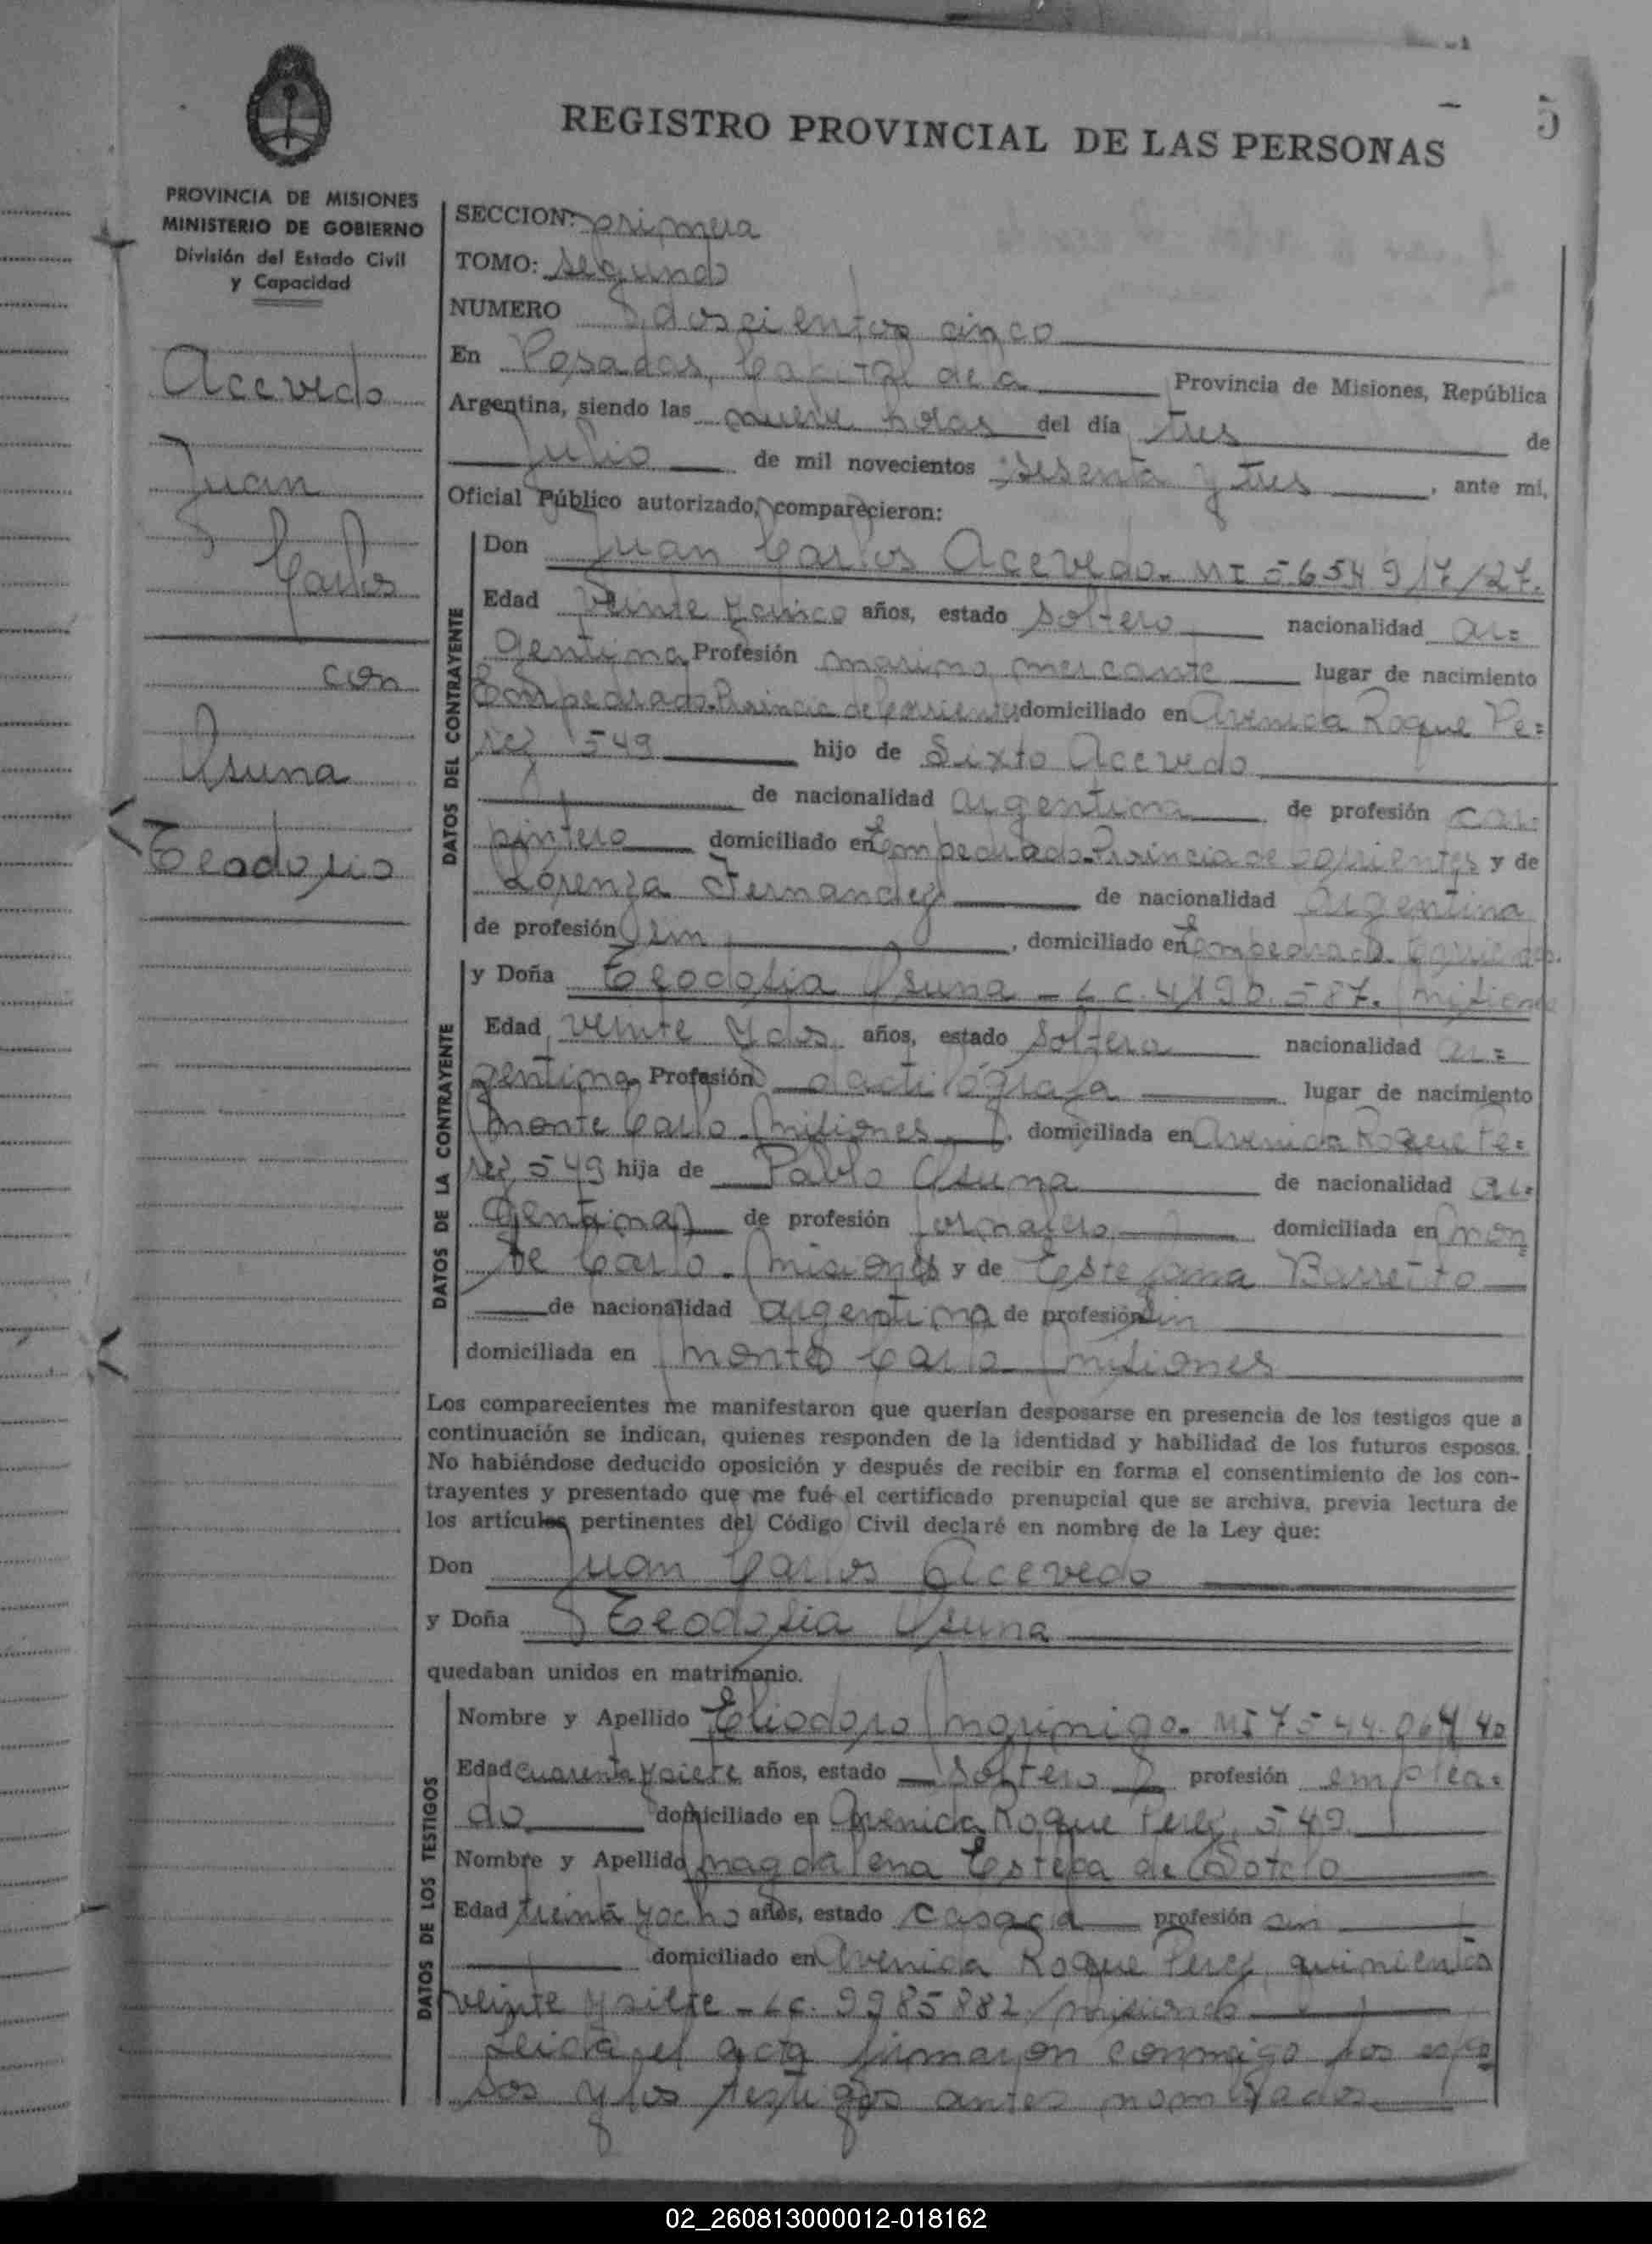 5
REGISTRO PROVINCIAL DE LAS PERSONAS
PROVINCIA DE MISIONES
MINISTERIO DE GOBIERNO
División del Estado Civil
y Capacidad
Acevedo
Juan
Carlos
con
Osuna
SECCION: primera
TOMO: segundo
NUMERO doscientos cinco
En Posadas, Capital de la Provincia de Misiones, República
Argentina, siendo las nueve horas del día tres de
Julio de mil novecientos sesenta y tres, ante mí,
Oficial Público autorizado, comparecieron:
DATOS DEL CONTRAYENTE
Don Juan Carlos Acevedo. MI 5654917/27.
Edad veinte y cinco años, estado soltero nacionalidad ar=
gentina Profesión marino mercante lugar de nacimiento
Empedrado. Provincia de Corrientes domiciliado en Avenida Roque Pe=
rez 549 hijo de Sixto Acevedo
de nacionalidad argentina de profesión car=
pintero domiciliado en Empedrado. Provincia de Corrientes y de
Lorenza Fernandez de nacionalidad argentina
de profesión sin, domiciliado en Empedrado. Corrientes.
DATOS DE LA CONTRAYENTE
y Doña Teodosia Osuna - L C. 4.190.587. Misiones
Edad veinte y dos años, estado soltera nacionalidad ar=
gentina Profesión dactilógrafa lugar de nacimiento
Monte Carlo. Misiones, domiciliada en Avenida Roque Pe=
rez 549 hija de Pablo Osuna de nacionalidad ar=
gentina de profesión jornalero domiciliada en Mon
te Carlo. Misiones y de Estefana Barreito
de nacionalidad argentina de profesión sin
domiciliada en Monte Carlo Misiones
Los comparecientes me manifestaron que querían desposarse en presencia de los testigos que a
continuación se indican, quienes responden de la identidad y habilidad de los futuros esposos.
No habiéndose deducido oposición y después de recibir en forma el consentimiento de los con-
trayentes y presentado que me fué el certificado prenupcial que se archiva, previa lectura de
los artículos pertinentes del Código Civil declaré en nombre de la Ley que:
Don Juan Carlos Acevedo
y Doña Teodosia Osuna
quedaban unidos en matrimonio.
DATOS DE LOS TESTIGOS
Nombre y Apellido Eliodoro Morinigo. MI 7544.064 40
Edad cuarenta y siete años, estado soltero profesión emplea=
do domiciliado en Avenida Roque Perez, 549
Nombre y Apellido Magdalena Esteba de Sotelo
Edad treinta y ocho años, estado casada profesión sin
domiciliado en Avenida Roque Perez, quinientos
veinte y siete - L C. 9985882 / Misiones
Leida el acta firmaron conmigo los espo
sos y los testigos antes nombrados
02_260813000012-018162